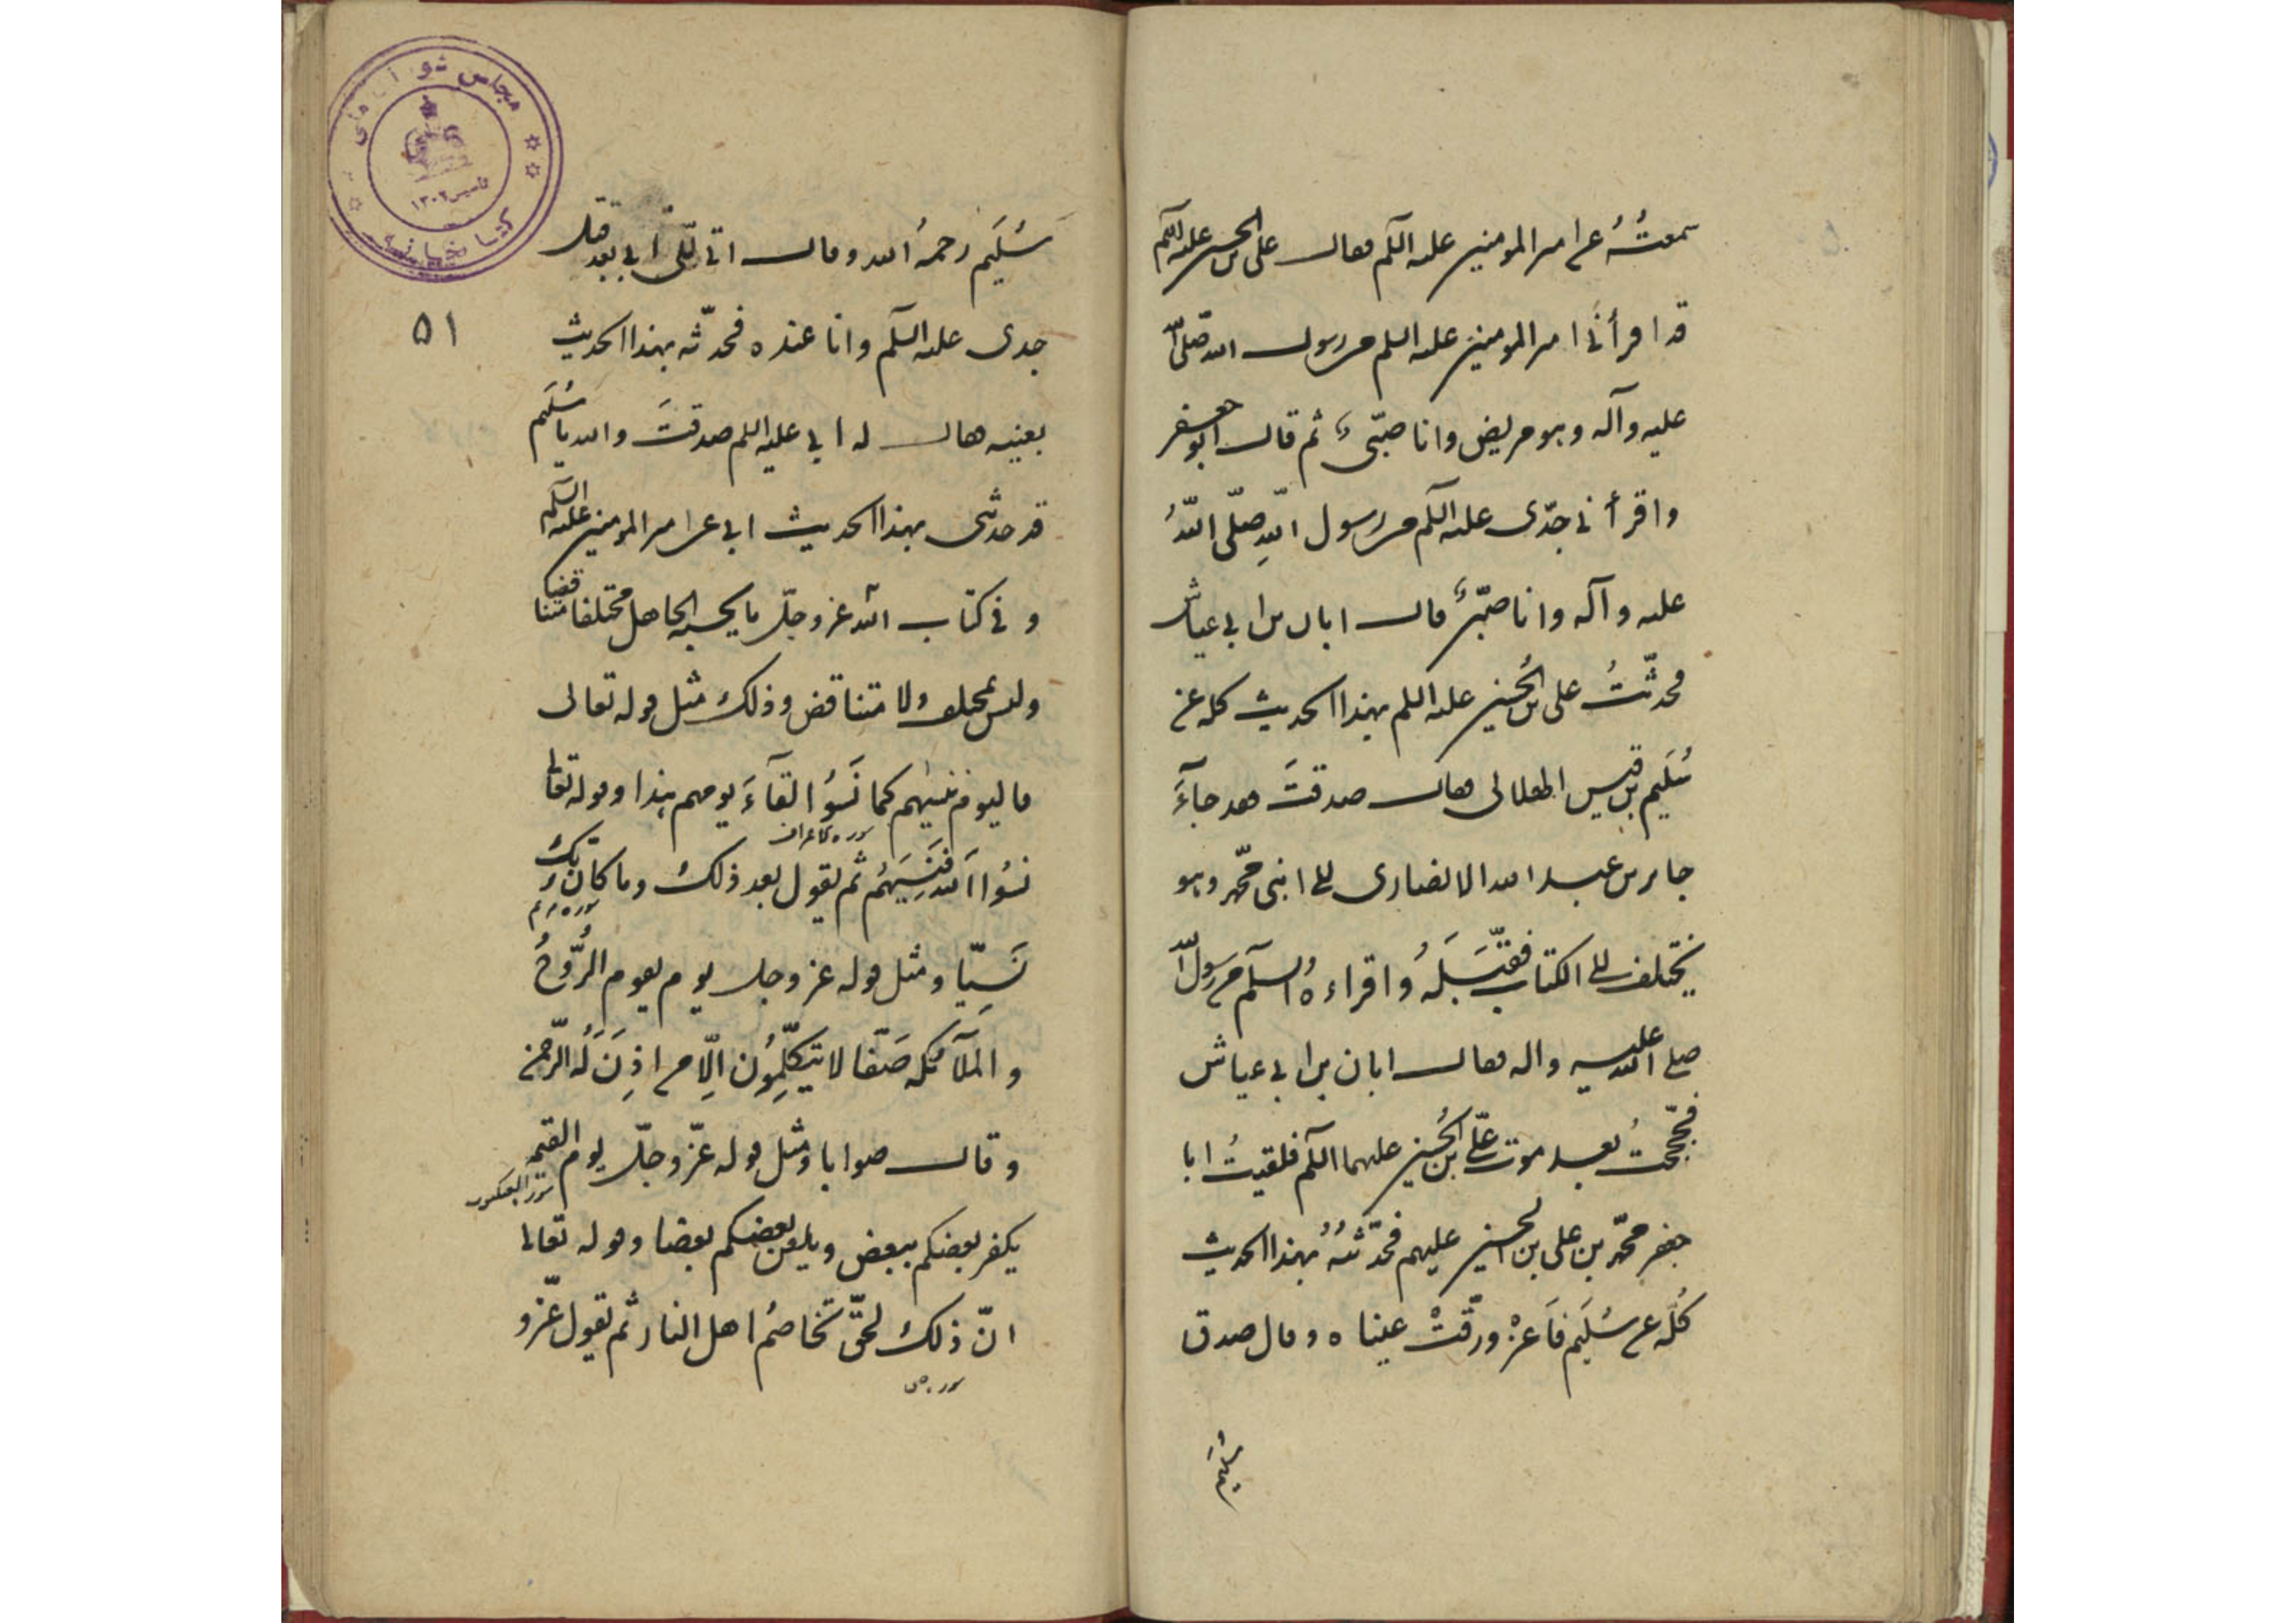 سمعتُهُ عن امير المومنين عليه السلم فقال على بن الحسين عليه السلم
قد اقرأنى امير المومنين عليه السلم من رسول الله صلى الله
عليه وآله وهو مريض وانا صبّى ثم قال ابو جعفر
واقرأنى جدّى عليه السلم من رسول اللهِ صلّى اللّهُ
عليه وآله وانا صبّى قال ابان بن ابى عياش
فحدّثتُ على بن الحُسين عليه السلم بهذا الحديث كله عن
سُلَيم بن قيس الهلالى فقال صدقتَ فقد جآءَ
جابر بن عبد الله الانصارى الى ابنى محمّد وهو
يختلف الى الكتاب فقبّلَهُ واقراءهُ السلم من رسول الله
صلى الله عليه واله فقال ابان بن ابى عياش
فحججتُ بعد موت علىّ بن الحُسين عليهما السلم فلقيتُ ابا
جعفر محمّد بن على بن الحسين عليهم فحدّثتُهُ بهذا الحديث
كُلّه عن سُلَيم فَاغرورقتْ عيناه وقال صدق
سُلَيم
سُلَيم رحمهُ الله وقال اتى الىّ ابى بعد قتل
۵۱
جدى عليه السلم وانا عنده فحدّثه بهذا الحديث
بعينه فقال له ابى عليه السلم صدقتَ والله يا سُلَيم
قد حدثنى بهذا الحديث ابى عن امير المومنين عليه السلم
وفى كتاب الله عز وجلّ ما يحسبه الجاهل مختلفا متناقضا
وليس بمختلف ولا متناقض وذلك مثل قوله تعالى
فاليوم ننسيهم كما نَسُوا لقآءَ يومهم هذا وقوله تعالى
سوره الاعراف
نسُوا الله فَنَسِيَهُم ثم يقول بعد ذلك وما كان ربّك
سوره مريم
نَسِيّا ومثل قوله عز وجل يوم يقوم الرُّوحُ
والملآئكه صَفّا لا يتكلّمِوُن الِّا من اذِنَ لَهُ الرّحمن
وقال صوابا ومثل قوله عزّ وجلّ يوم القيمه
سوره العنكبوت
يكفر بعضكم ببعض ويلعن بعضكم بعضا وقوله تعالى
انّ ذلك لحقّ تخاصمُ اهل النار ثم يقول عزّ و
سوره ص
مجلس شورای ملی
تاسیس ۱۳۰۲
کتابخانه